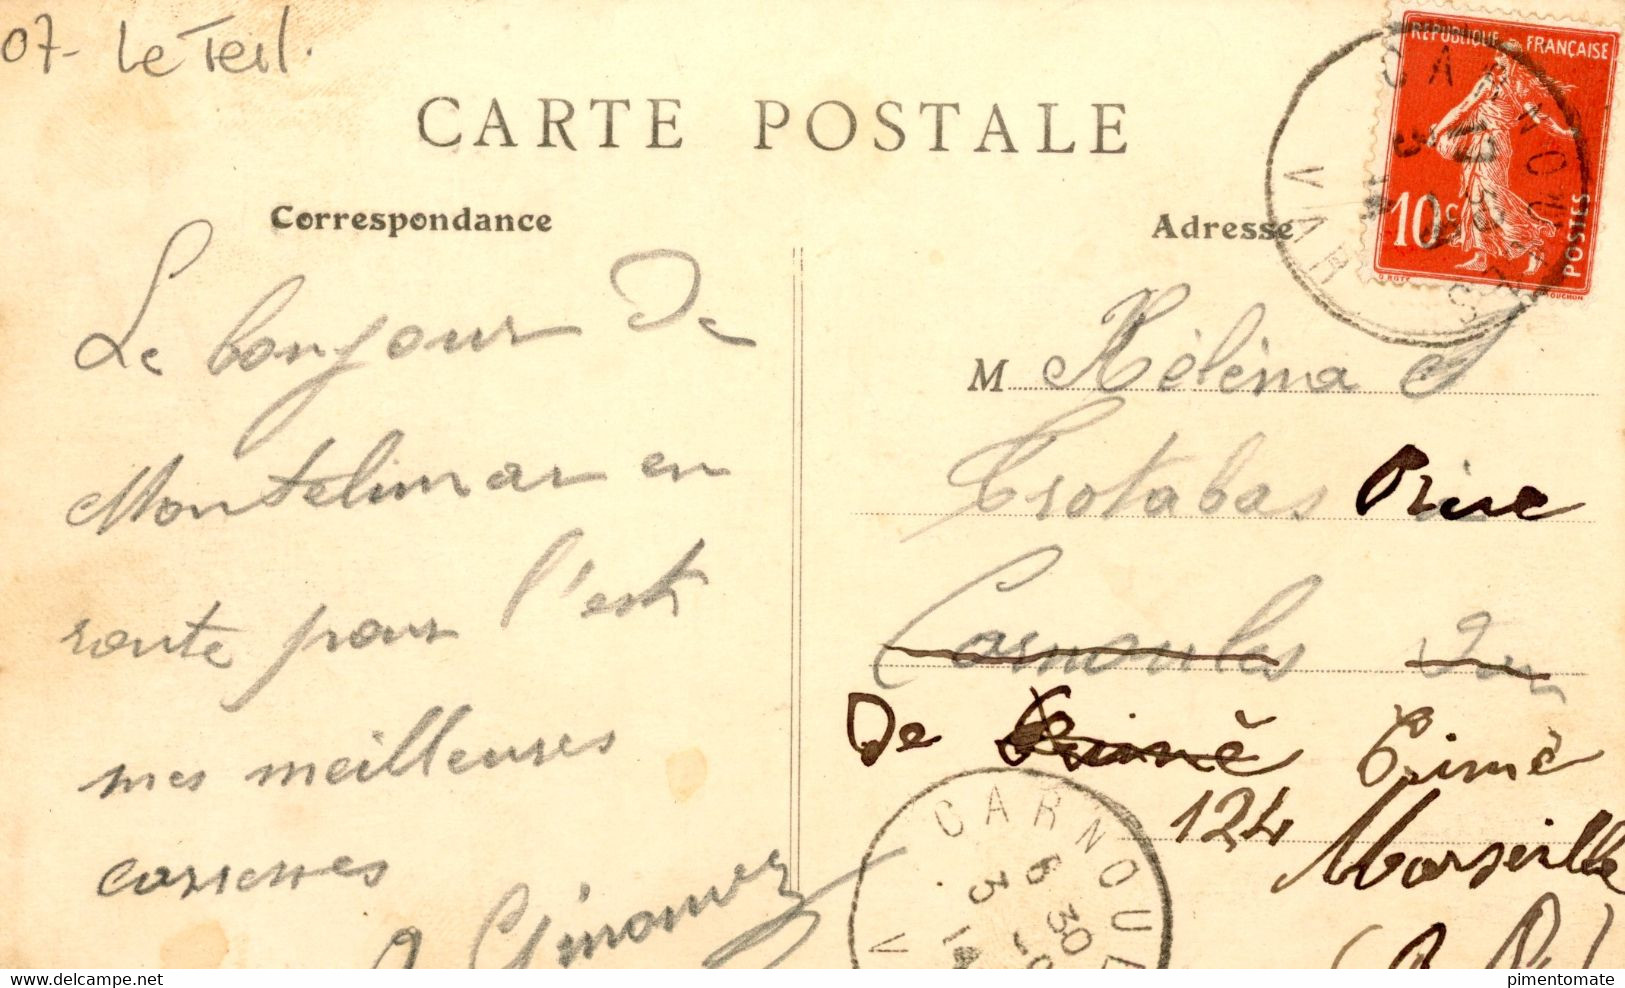 07- Le Teil.
CARTE POSTALE
Correspondance
Le bonjour De
Montelimar en
route pour l'est
mes meilleures
caresses
Adresse
REPUBLIQUE FRANÇAISE
10c
POSTES
O. ROTY
CARNOULES
VAR
M Héléna
Trotabas Rue
Carnoules Var
De Crimè
124 Marseille
CARNOU
6 30
3
14
www.delcampe.net
pimentomate